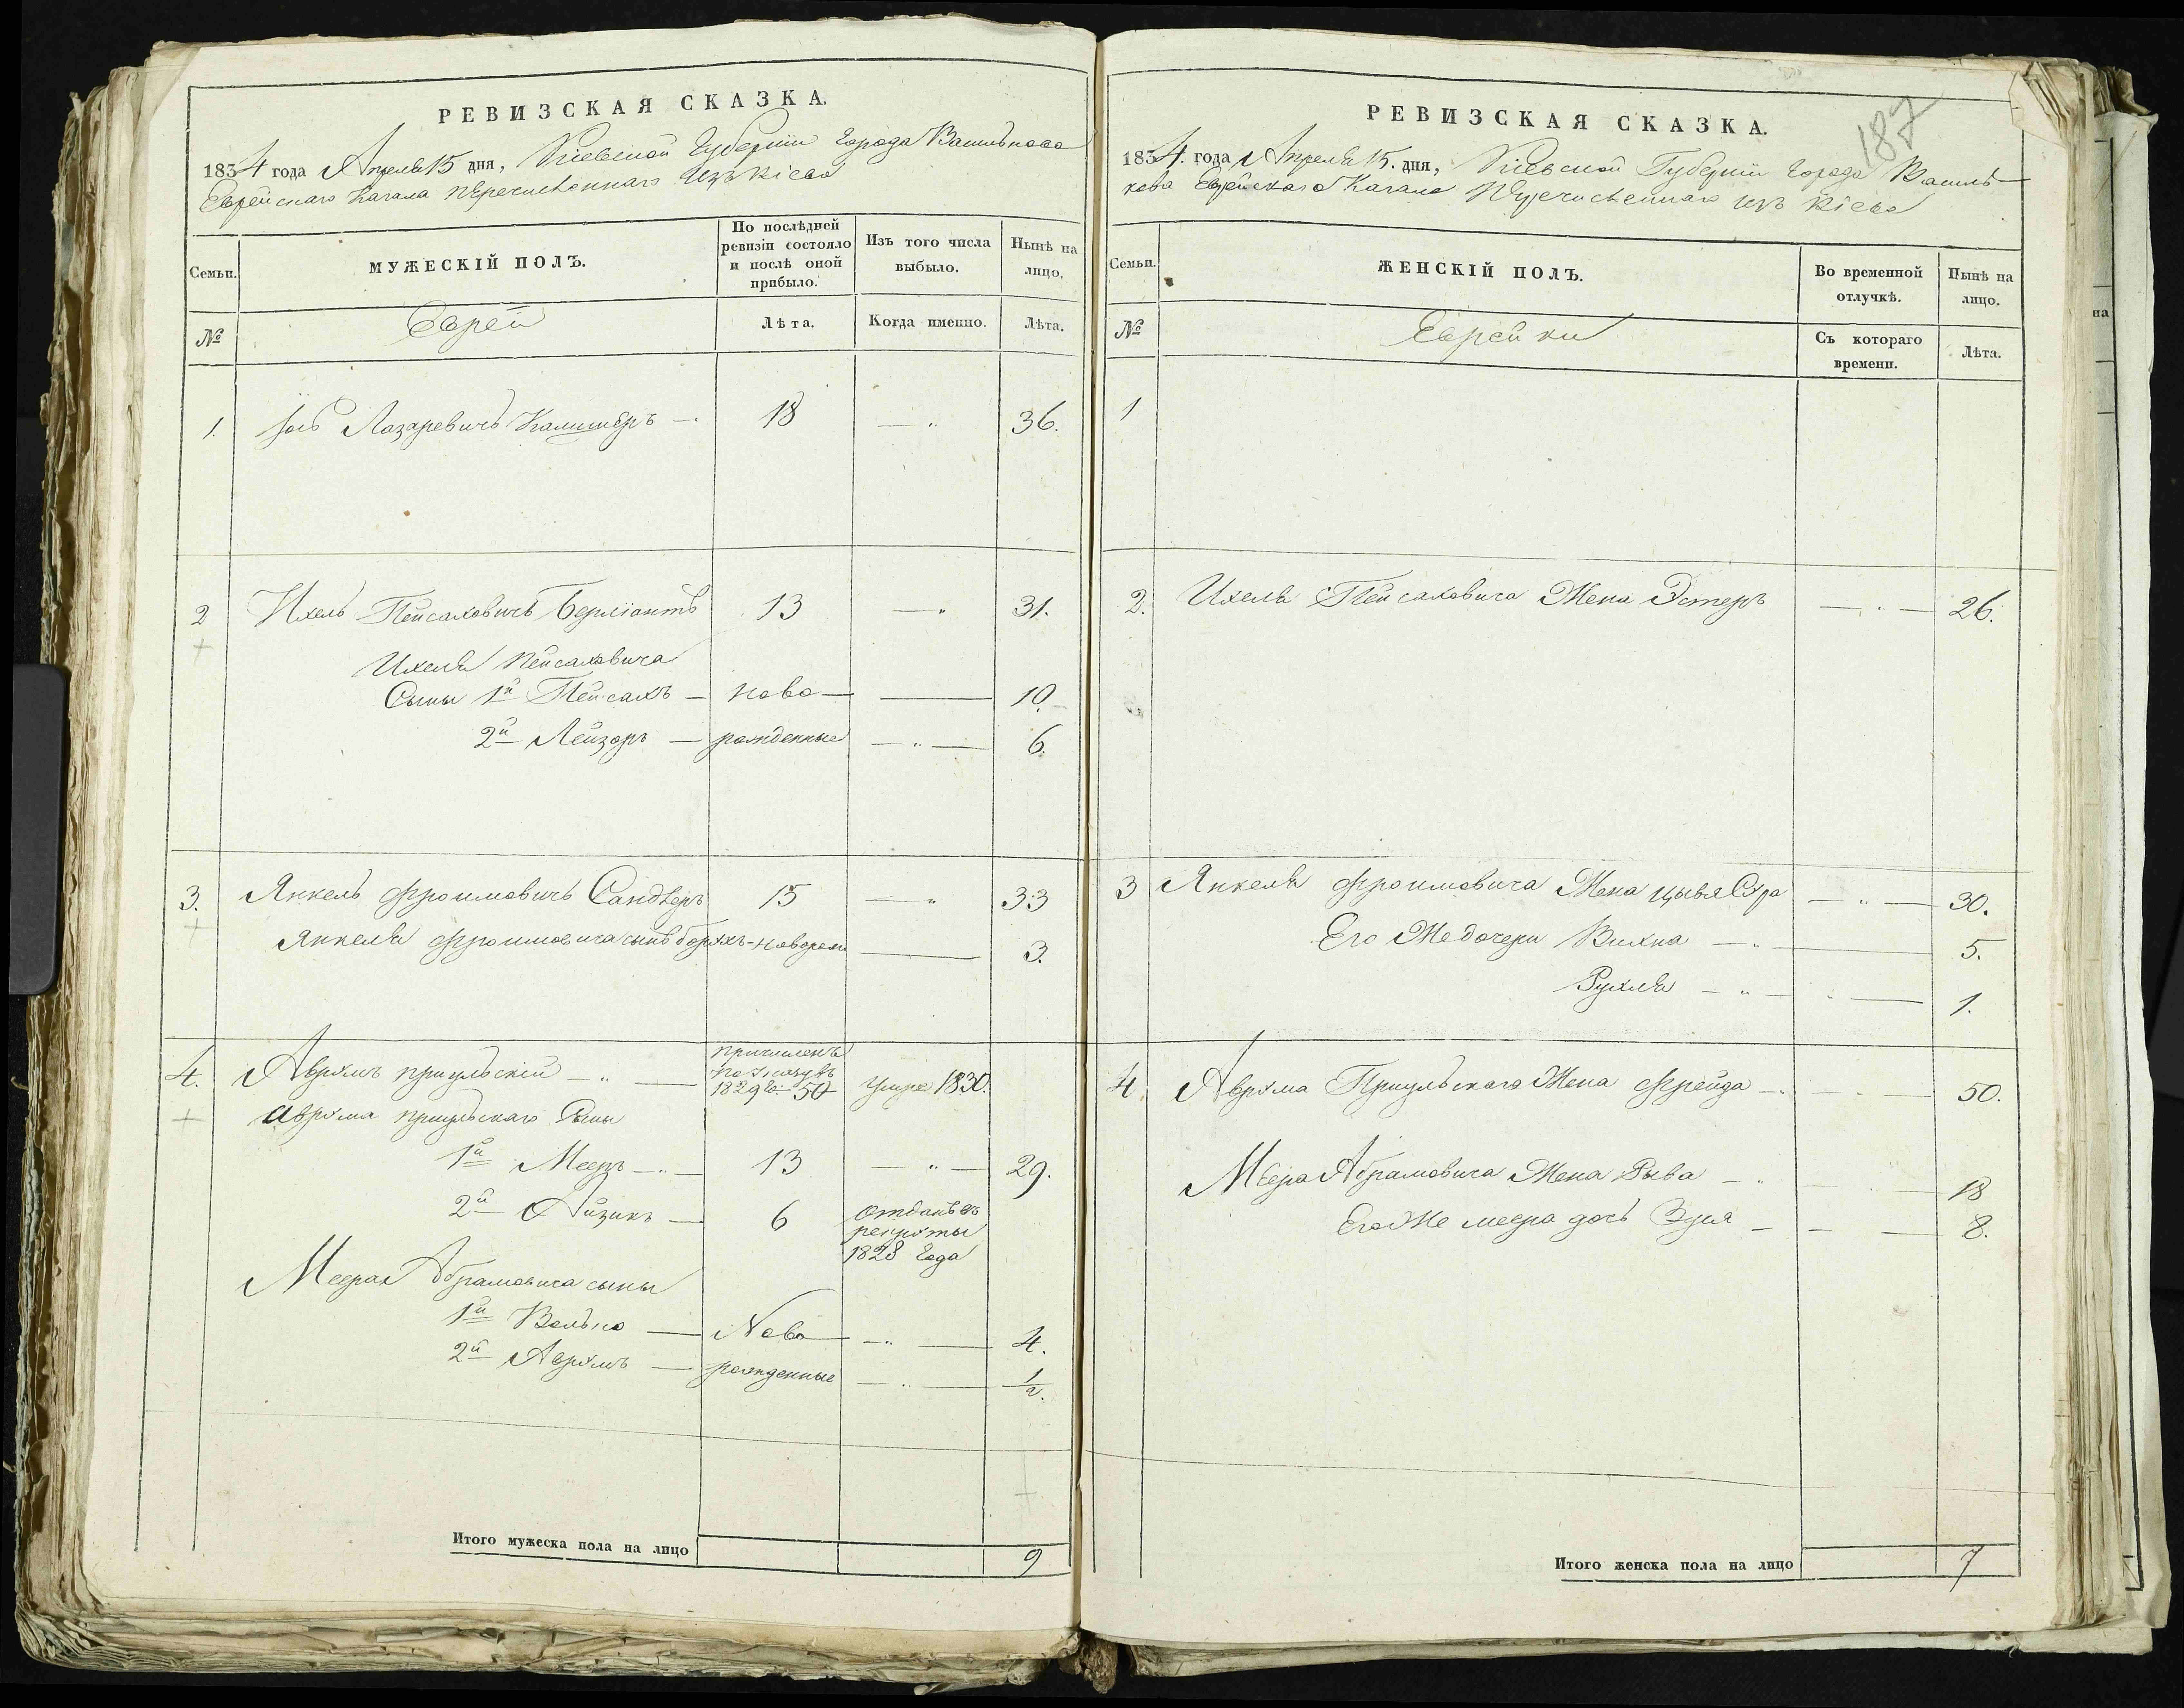 РЕВИЗСКАЯ СКАЗКА.
1834 года Апреля 15 дня, Кіевской Губерніи Города Василькова
Еврейскаго Кагала перечисленнаго изъ Кіева
Семьи.
МУЖЕСКІЙ ПОЛЪ.
По послѣдней ревизіи состояло и послѣ оной прибыло.
Изъ того числа выбыло.
Нынѣ на лицо.
№
Еврей
Лѣта.
Когда именно.
Лѣта.
1. Іось Лазаревичъ Калишеръ — 18 — " 36.
2 Ихель Пейсаховичъ Берліантъ 13 — " 31.
Ихеля Пейсаховича
Сыны 1й Пейсахъ — ново — — 10.
2й Лейзоръ — рожденные — " — 6.
3. Янкель Фроимовичъ Сандлеръ 15 — " 33
Янкеля Фроимовича сынъ борухъ - новорож — 3.
4. Аврумъ прицульскій — " — причисленъ
по указу въ
1829 го: 50 умре 1830.
аврума прицульскаго Сыны
1й Мееръ — " — 13 — " — 29.
2й Айзикъ — 6 отданъ въ
рекруты
1828 года
Меера Абрамовича сыны
1й Волько — Ново — " — 4.
2й Аврумъ — рожденные — " — 1/2.
Итого мужеска пола на лицо 9
187
РЕВИЗСКАЯ СКАЗКА.
1834. года Апреля 15. дня, Кіевской Губерніи Города Василь-
кова Еврейскаго Кагала перечисленнаго изъ Кіева
Семьи.
ЖЕНСКІЙ ПОЛЪ.
Во временной отлучкѣ.
Нынѣ на лицо.
№
Еврейки
Съ котораго времени.
Лѣта.
1
2. Ихеля Пейсаховича Жена Эстеръ — " — 26.
3 Янкеля Фроимовича Жена Цывя Сура — " — 30.
Его Же дочери Вихна — " — 5.
Рухля — " — " — 1.
4 Аврума Прицульскаго Жена Фрейда — " — 50.
Меера Абрамовича Жена Рыва — " — 18
Его Же меера дочь Эдия — — — 8.
Итого женска пола на лицо 7